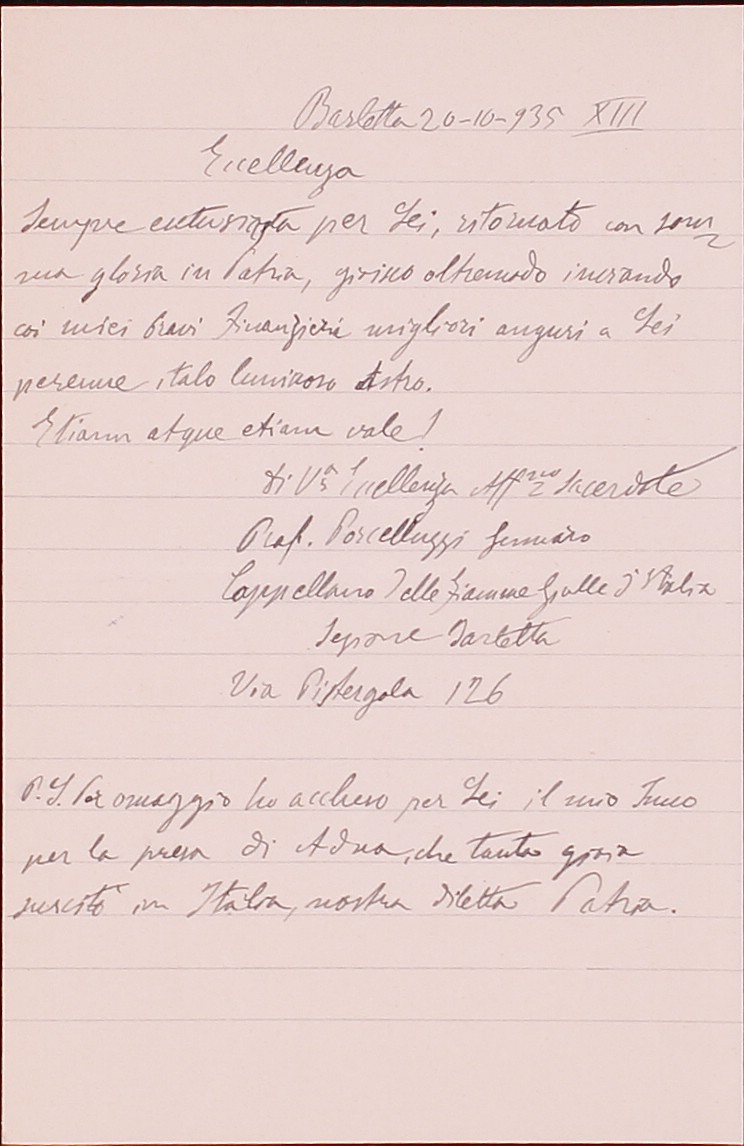 Barletta 20-10-935 XIII
Eccellenza
Sempre entusiasta per Lei, ritornato con som-
ma gloria in Patria, gioisco oltremodo inviando
coi miei bravi Finanzieri migliori auguri a Lei
perenne italo luminoso Astro.
Etiam atque etiam vale!
di Vª Eccellenza Aff.mo Sacerdote
Prof. Porcelluzzi Gennaro
Cappellano delle Fiamme Gialle d'Italia
Sezione Barletta
Via Pistergola 126
P.S. Per omaggio ho accluso per Lei il mio Inno
per la presa di Adua, che tanta gioia
suscitò in Italia, nostra diletta Patria.